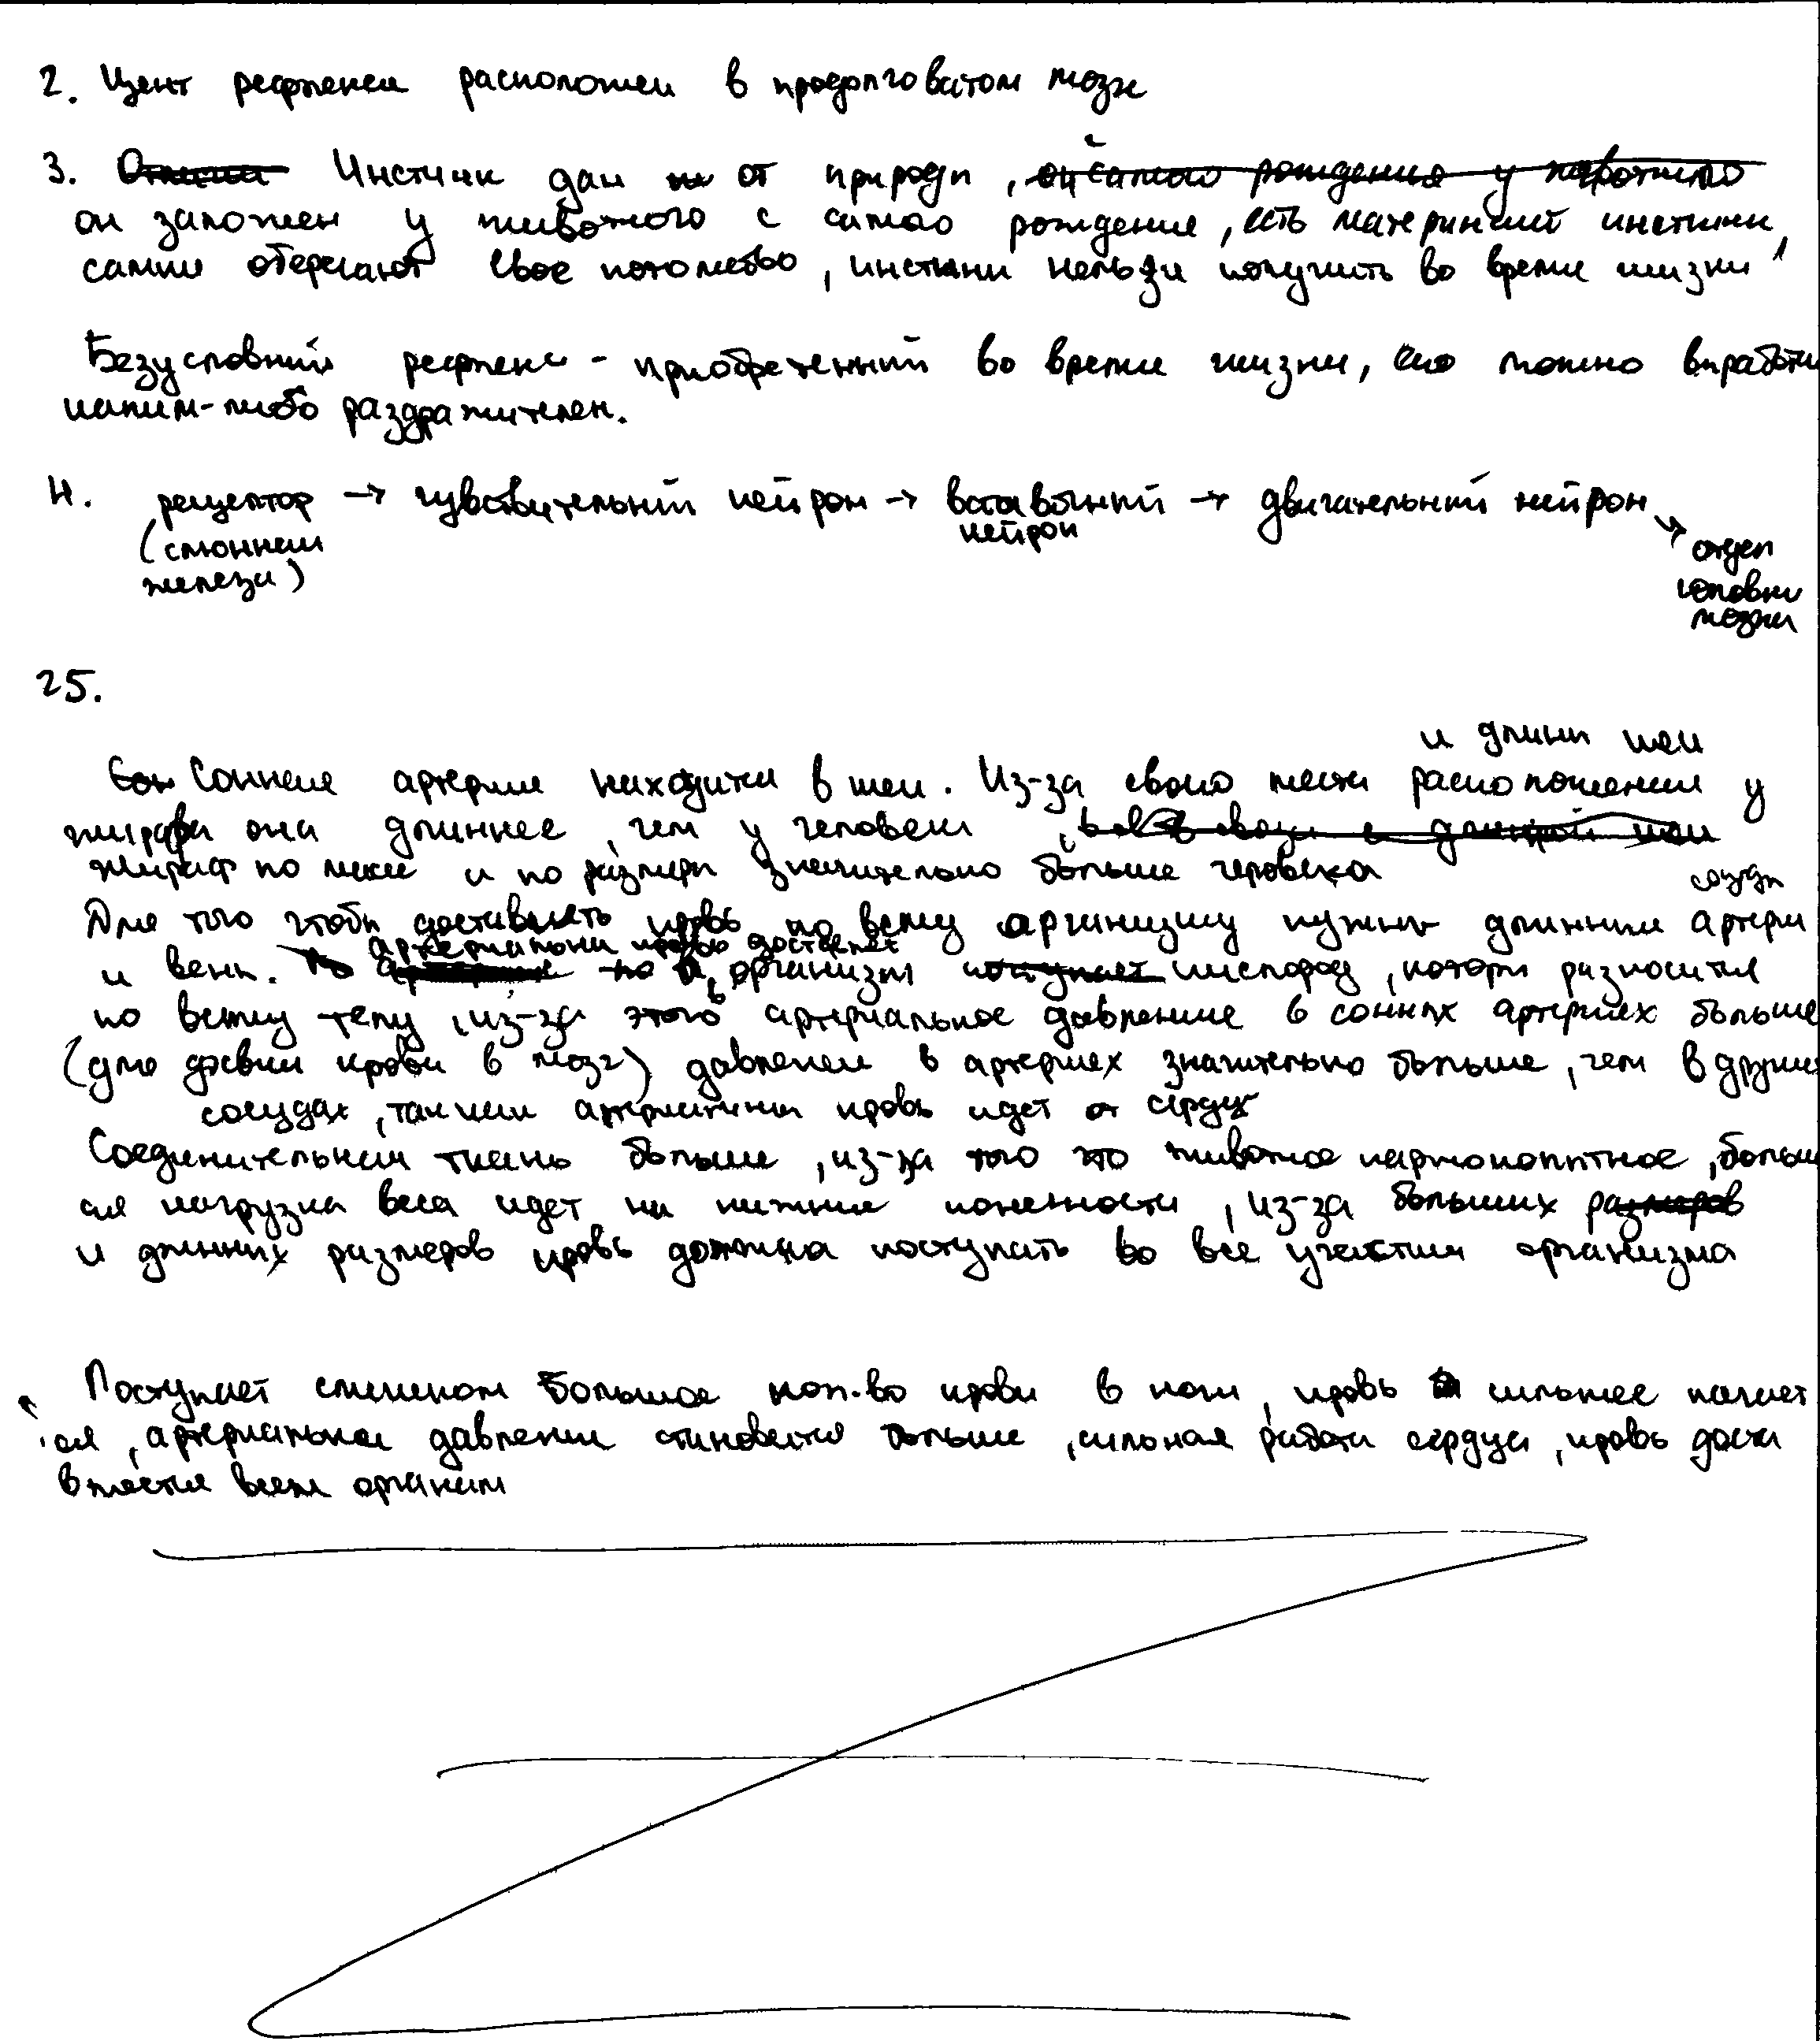 2. Цент рефлекса расположен в продолговатом мозге
3. Инстинк дан от природы,
он заложен у животного с самого рождения, есть материнский инстинкт,
самки оберегают свое потомство, инстинкт нельзя получить во время жизни
Безусловный рефлекс - приобретенный во время жизни, его можно выработ
каким-либо раздражителем.
4. рецептор → чувствительный нейрон → вставочный → двигательный нейрон →
(слюнная нейрон отдел
железа) головны
мозга
25.
и длины шеи
Сонная артерия находится в шеи. Из-за своего места расположения у
жирафа она длиннее, чем у человека,
жираф по массе и по размеру значительно больше человека
сосуды
Для того чтобы доставлять кровь по всему организму нужны длинные артери
артериальная кровь доставляет
и вены. в организм кислород, который разносится
по всему телу, из-за этого артериальное давление в сонных артериях больше
(для крови в мозг) давление в артериях значительно больше, чем в других
сосудах, так как кровь идет от сердца
Соединительная ткань больше, из-за того что животное парнокопытное, больш
ая нагрузка веса идет на нижние конечности, из-за больших
и длинных размеров кровь должна поступать во все участки организма
Поступает слишком большое кол-во крови в ноги, кровь сильнее качает
ся, артериальное давление становится больше, сильная работа сердца, кровь доста
вляется всем органам